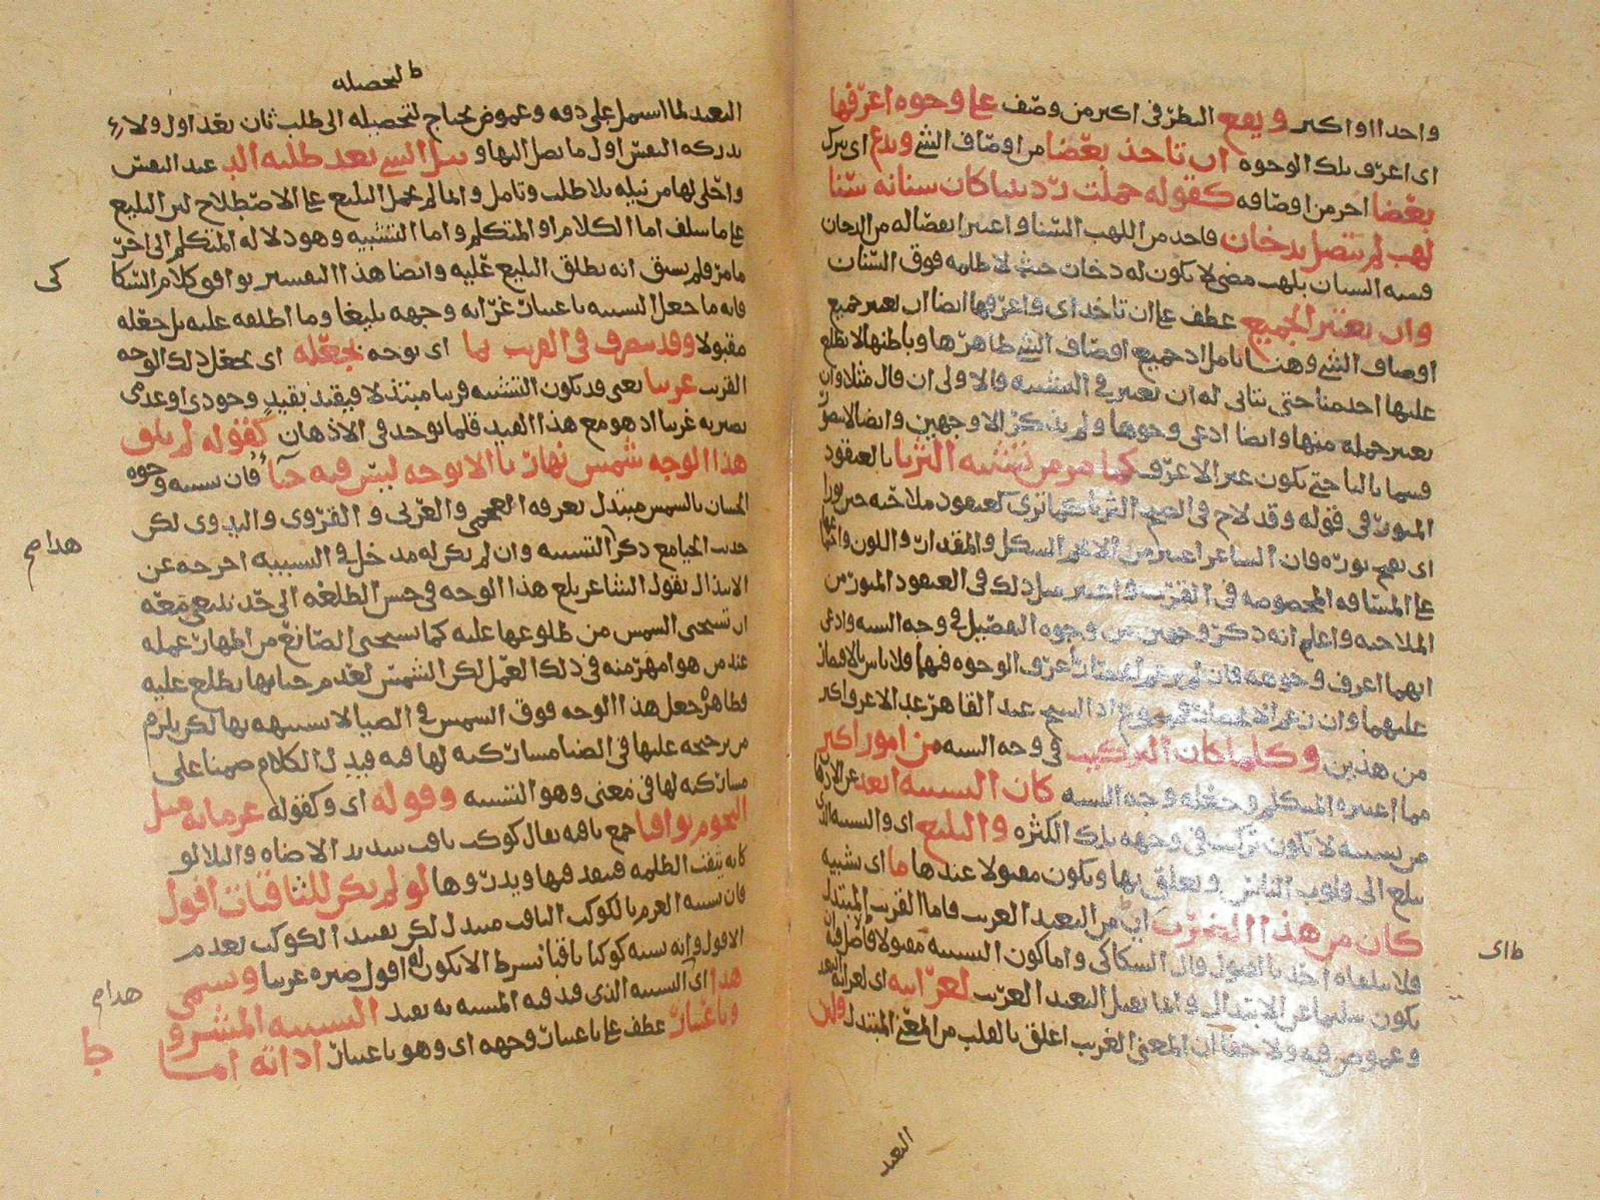 واحدا او اكثر ويقع النظر في اكثر من وصف على وجوه اعرفها
اى اعرف تلك الوجوه ان تاخذ بعضا من اوصاف الشئ وتدع اى تترك
بعضا اخر من اوصافه كقوله حملت ردينيا كان سنانه سنا
لهب لم يتصل بدخان فاخذ من اللهب السنا واعتبر انفصاله من الدخان
فشبه السنان بلهب مضئ لا يكون له دخان حتى لا ظلمة فوق السنان
وان يعتبر الجميع عطف على ان تاخذ اى واعرفها ايضا ان يعتبر جميع
اوصاف الشئ وهنا تامل اذ جميع اوصاف الشئ ظاهرها وباطنها لا يطلع
عليها احد منا حتى يتاتى له ان يعتبر في التشبيه فالاولى ان قال مثلا وان
يعتبر جملة منها وايضا ادعى وجوها ولم يذكر الا وجهين وايضا
حتى يكون غير الاعرف كما مر من تشبيه الثريا بالعنقود
المنور في قوله وقد لاح في الصبح الثريا كما ترى كعنقود ملاحية حين نورا
اى تفتح نوره فان الشاعر اعتبر من الشكل والمقدار واللون
على المسافة المخصوصة في القرب واعتبر مثل ذلك في العنقود المنور من
الملاحية واعلم انه ذكر وجهين من وجوه التفصيل في وجه الشبه وادعى
انهما اعرف وجوهه فان لم اعرف الوجوه فيهما فلا باس بالاقتصار
عليهما وان زعم الشيخ عبد القاهر عد الاعرف اكثر
من هذين وكلما كان التركيب في وجه الشبه من امور اكثر
مما اعتبره المتكلم وجعله وجه الشبه كان التشبيه ابعد
من تشبيه لا يكون تركيب في وجهه بتلك الكثرة والبليغ اى والتشبيه الذى
يبلغ الى قلوب الناس ويعلق بها ويكون مقبولا عندها ما اى تشبيه
كان من هذا الضرب اى من البعيد الغريب فاما القريب المبتذل
فلا يتلقاه احد بالقبول قال السكاكي واما كون التشبيه مقبولا فاصل فيه
يكون سليما عن الابتذال وانما يقبل البعيد الغريب لغرابته اى لغرابة البعيد
وغموض فيه ولا خفا ان المعنى الغريب اعلق بالقلب من المعنى المبتذل ولان
ط اى
البعيد
ط لتحصله
البعيد لما اشتمل على دقة وغموض يحتاج لتحصيله الى طلب ثان بعد اول ولا
يدركه النفس اول ما يصل اليها ونيل الشئ بعد طلبه الذ عند النفس
واحلى لها من نيله بلا طلب وتامل وانما لم يحمل البليغ على الاصطلاح لان البليغ
على ما سلف اما الكلام او المتكلم واما التشبيه وهو دلالة المتكلم الى اخر
ما مر فلم يسبق انه يطلق البليغ عليه وايضا هذا التفسير يوافق كلام السكا
كى
فانه ما جعل التشبيه باعتبار غرابة وجهه بليغا وما اطلقه عليه بل جعله
مقبولا وقد يتصرف في القريب بما اى بوجه يجعله اى يجعل ذلك الوجه
القريب غريبا يعنى قد يكون التشبيه قريبا مبتذلا فيقيد بقيد وجودى او عدمى
يصير به غريبا اذ هو مع هذا القيد قلما يوجد في الاذهان كقوله لم يلق
هذا الوجه شمس نهارنا الا بوجه ليس فيه حيا فان تشبيه وجوه
الحسان بالشمس مبتذل يعرفه العجمى والعربى والقروى والبدوى لكن
حديث الحيا مع ذكر التشبيه وان لم يكن له مدخل في التشبيه اخرجه عن
هدا مح
الابتذال يقول الشاعر بلغ هذا الوجه في حسن الطلعة الى حد ينبغى معه
ان تستحيى الشمس من طلوعها عليه كما يستحيى الصانع من اظهار عمله
عند من هو امهر منه في ذلك العمل لكن الشمس لعدم حيائها يطلع عليه
فظاهره جعل هذا الوجه فوق الشمس في الضيا لا تشبيهه بها لكن يلزم
من ترجيحه عليها في الضيا مشاركته لها فيه فيدل الكلام ضمنا على
مشاركته لها في معنى وهو التشبيه وقوله اى وكقوله عزماته مثل
النجوم ثواقبا جمع ثاقبة يقال كوكب ثاقب شديد الاضاة والتلالو
كانه يثقب الظلمة فينفذ فيها ويدروها لو لم يكن للثاقبات افول
فان تشبيه العزم بالكوكب الثاقب مبتذل لكن تقييد الكوكب بعدم
الافول وانه شبه كوكبا ثاقبا بشرط الا يكون له افول صيره غريبا ويسمى
هذا اى التشبيه الذى قيد فيه المشبه به بقيد التشبيه المشروط
هدا مح
وباعتبار عطف على باعتبار وجهه اى وهو باعتبار اداته اما